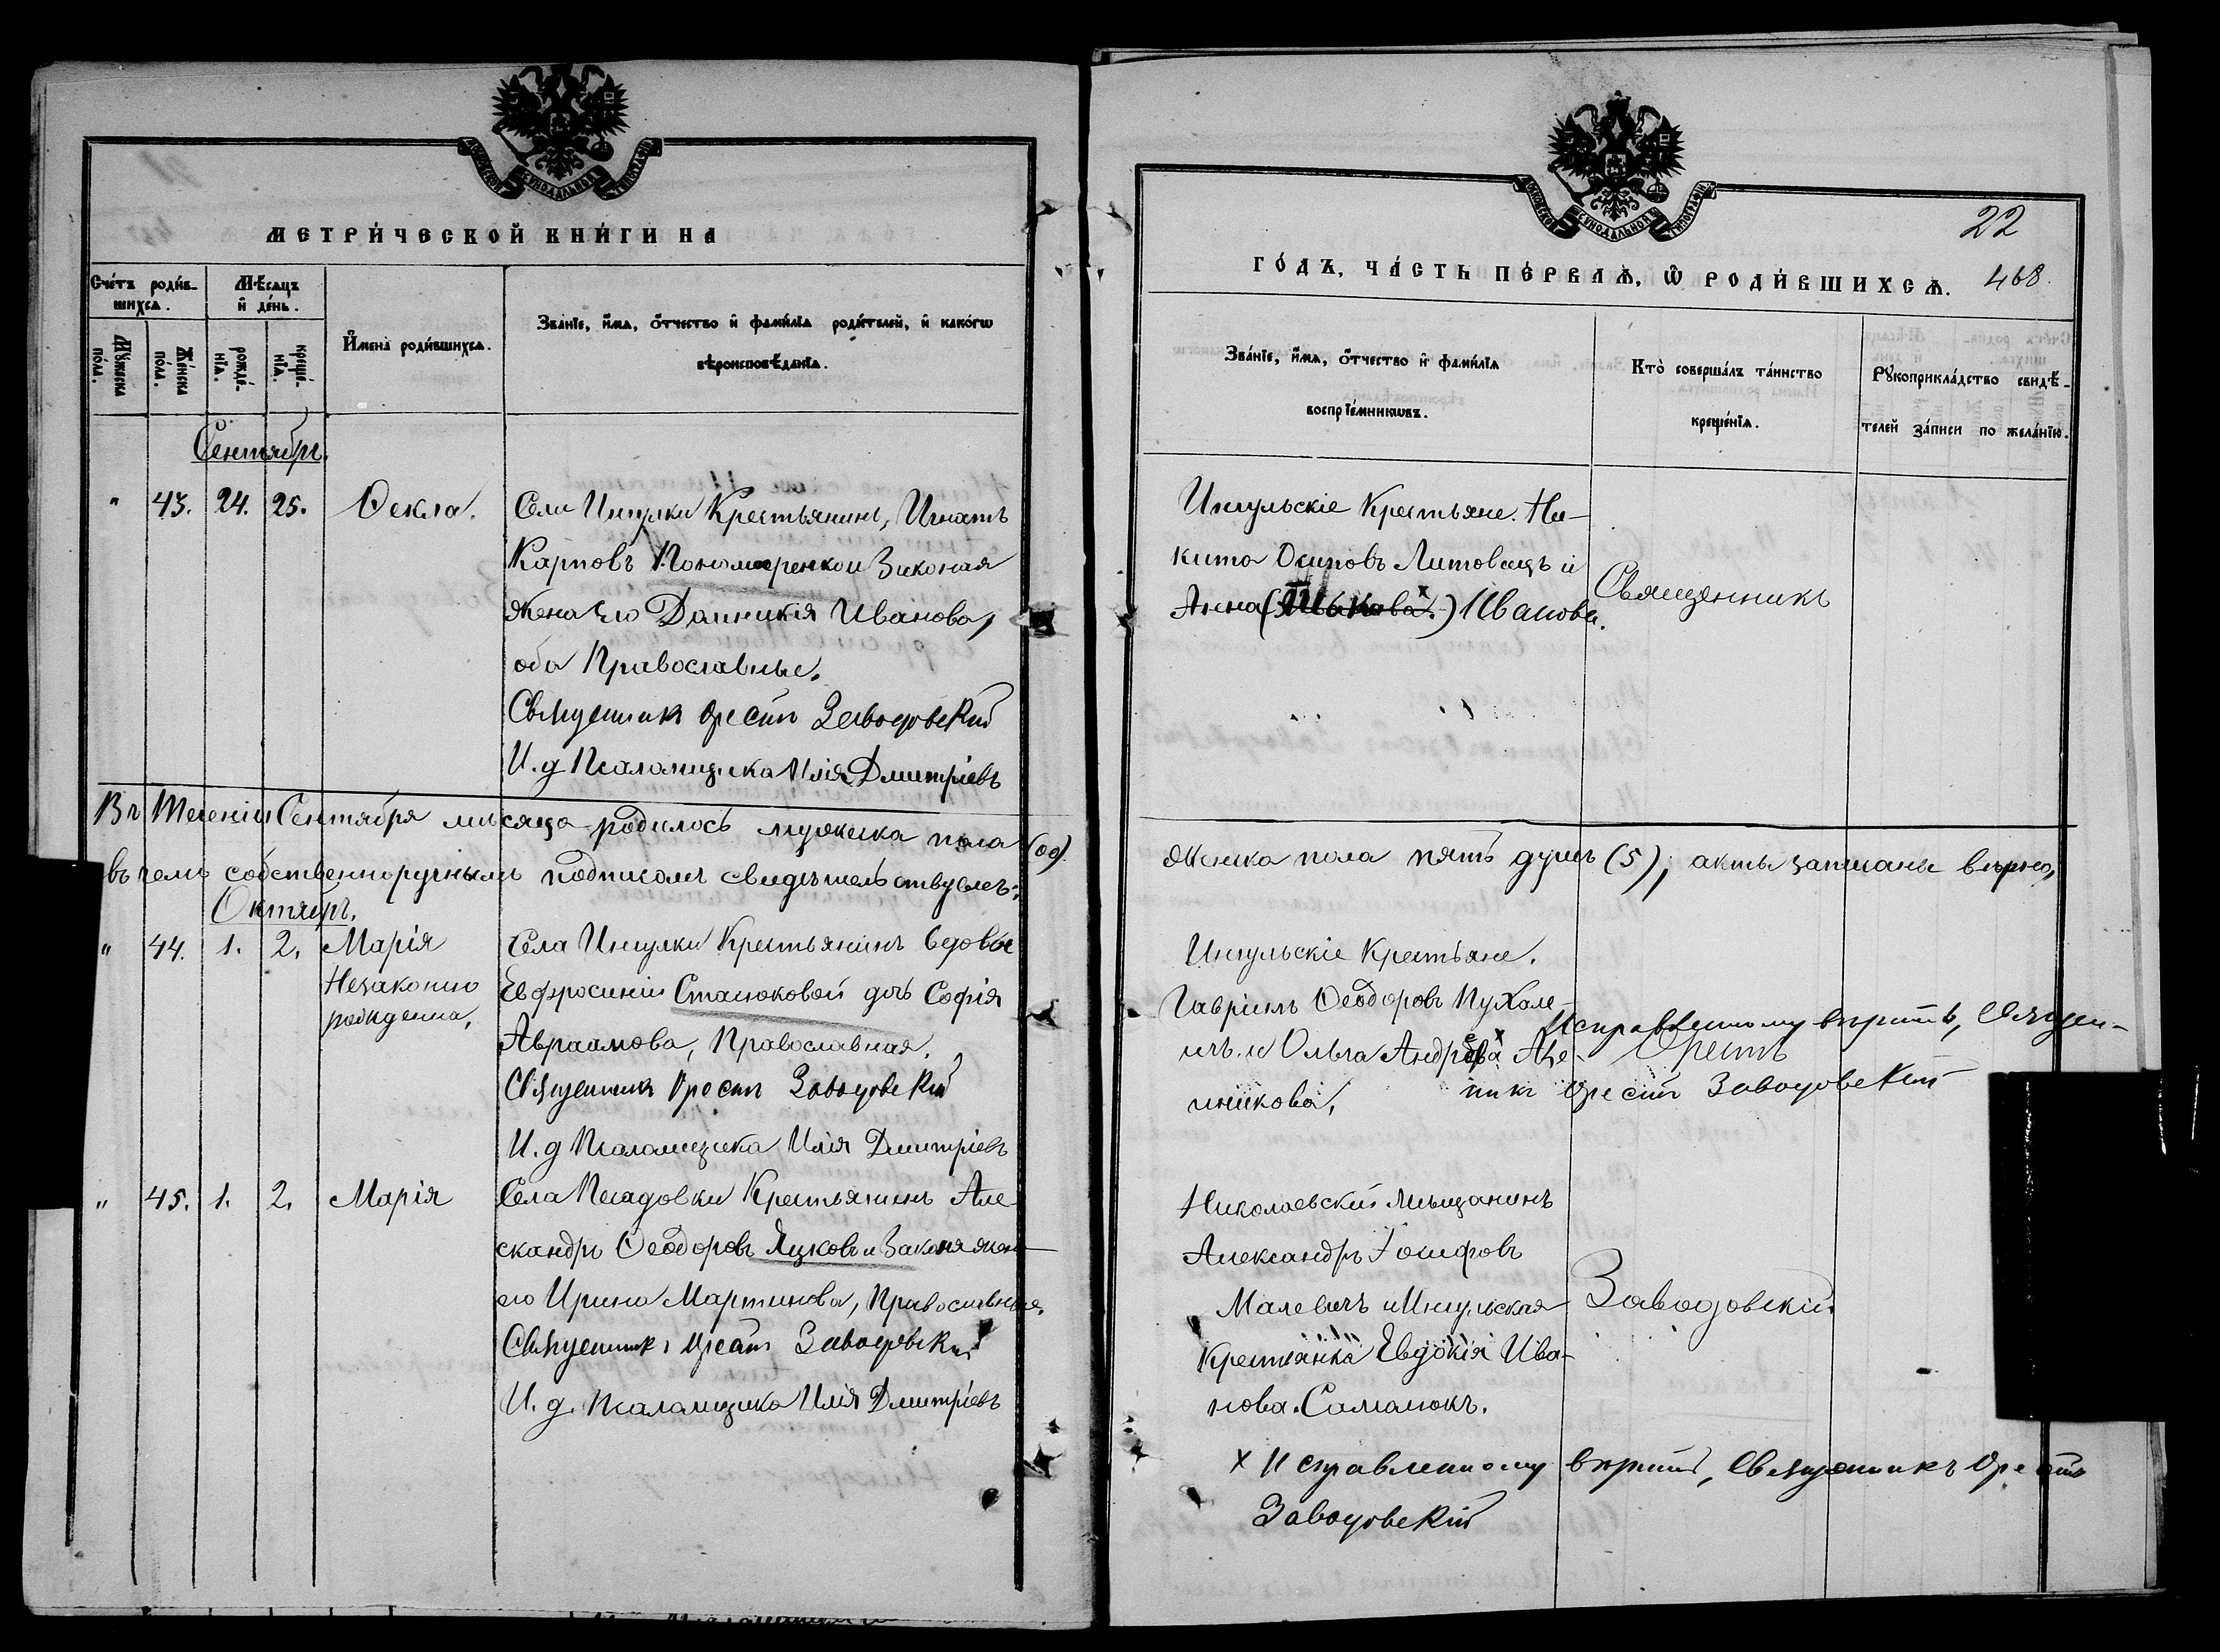 МОСКОВСКОЙ СѴНОДАЛЬНОЙ ТИПОГРАФІИ
МЕТРИ́ЧЕСКОЙ КНИ́ГИ НА
Сче́тъ роди́в-
шихсѧ.
Мѣ́сѧцъ
и҆ де́нь.
И҆мена̀ роди́вшихсѧ.
Зва́нїе, и҆́мѧ, ѻ҆́тчество и҆ фами́лїѧ роди́телей, и҆ како́гѡ
вѣроисповѣ́данїѧ.
Мꙋ́жеска
по́ла.
Же́нска
по́ла.
рожде́-
нїѧ.
креще́-
нїѧ.
Сентябрь.
" 43. 24. 25. Ѳекла. Села Ингулки Крестьянинъ, Игнатъ
Карповъ Пономаренко и Законая
жена его Домникія Иванова,
оба Православные.
Священникъ Орестъ Заводовскій
И. д Псаломщика Илія Дмитріевъ
Въ Теченіи Сентября мѣсяца родилось мужеска пола (00).
въ чемъ собственноручнымъ подписомъ свидѣтельствуемъ:
Октябрь.
" 44. 1. 2. Марія
Незаконно
рожденна,
Села Ингулки Крестьянинъ вдовы
Евфросиніи Сталюковой дочь Софія
Авраамова, Православная.
Священникъ Орестъ Заводовскій
И. д Псаломщика Илія Дмитріевъ
" 45. 1. 2. Марія Села Песадовки Крестьянинъ Але-
скандръ Ѳеодоровъ Яцковъ и Законя жена
его Ирина Мартинова, Православные.
Священникъ Орестъ Заводовскій
И. д. Псаломщика Илія Дмитріевъ
МОСКОВСКОЙ СѴНОДАЛЬНОЙ ТИПОГРАФІИ
22
ГО́ДЪ, ЧА́СТЬ ПЕ́РВАѦ, Ѽ РОДИ́ВШИХСѦ. 468.
Зва́нїе, и҆́мѧ, ѻ҆́тчество и҆ фами́лїѧ
воспрїе́мникѡвъ.
Кто̀ соверша́лъ та́инство
креще́нїѧ.
Рꙋкоприкла́дство свидѣ́-
телей за́писи по жела́нїю.
Ингульскіе Крестьяне. Ни-
кита Осиповъ Литовецъ и
Анна Иванова.
Священникъ
женска пола пять душъ (5); акты записаны вѣрно,
Ингульскіе Крестьяне.
Гавріилъ Ѳеодоровъ
и Ольга
Исправленному вѣрить, Священ-
Орестъ
никъ Орестъ Заводовскій
Николаевскій мѣщанинъ
Александръ Іосифовъ
Малевичъ и Ингульская
Крестьянка Евдокія Ива-
нова. Саманокъ.
Заводовскій.
х Исправленному вѣрить, Священникъ Орестъ
Заводовскій